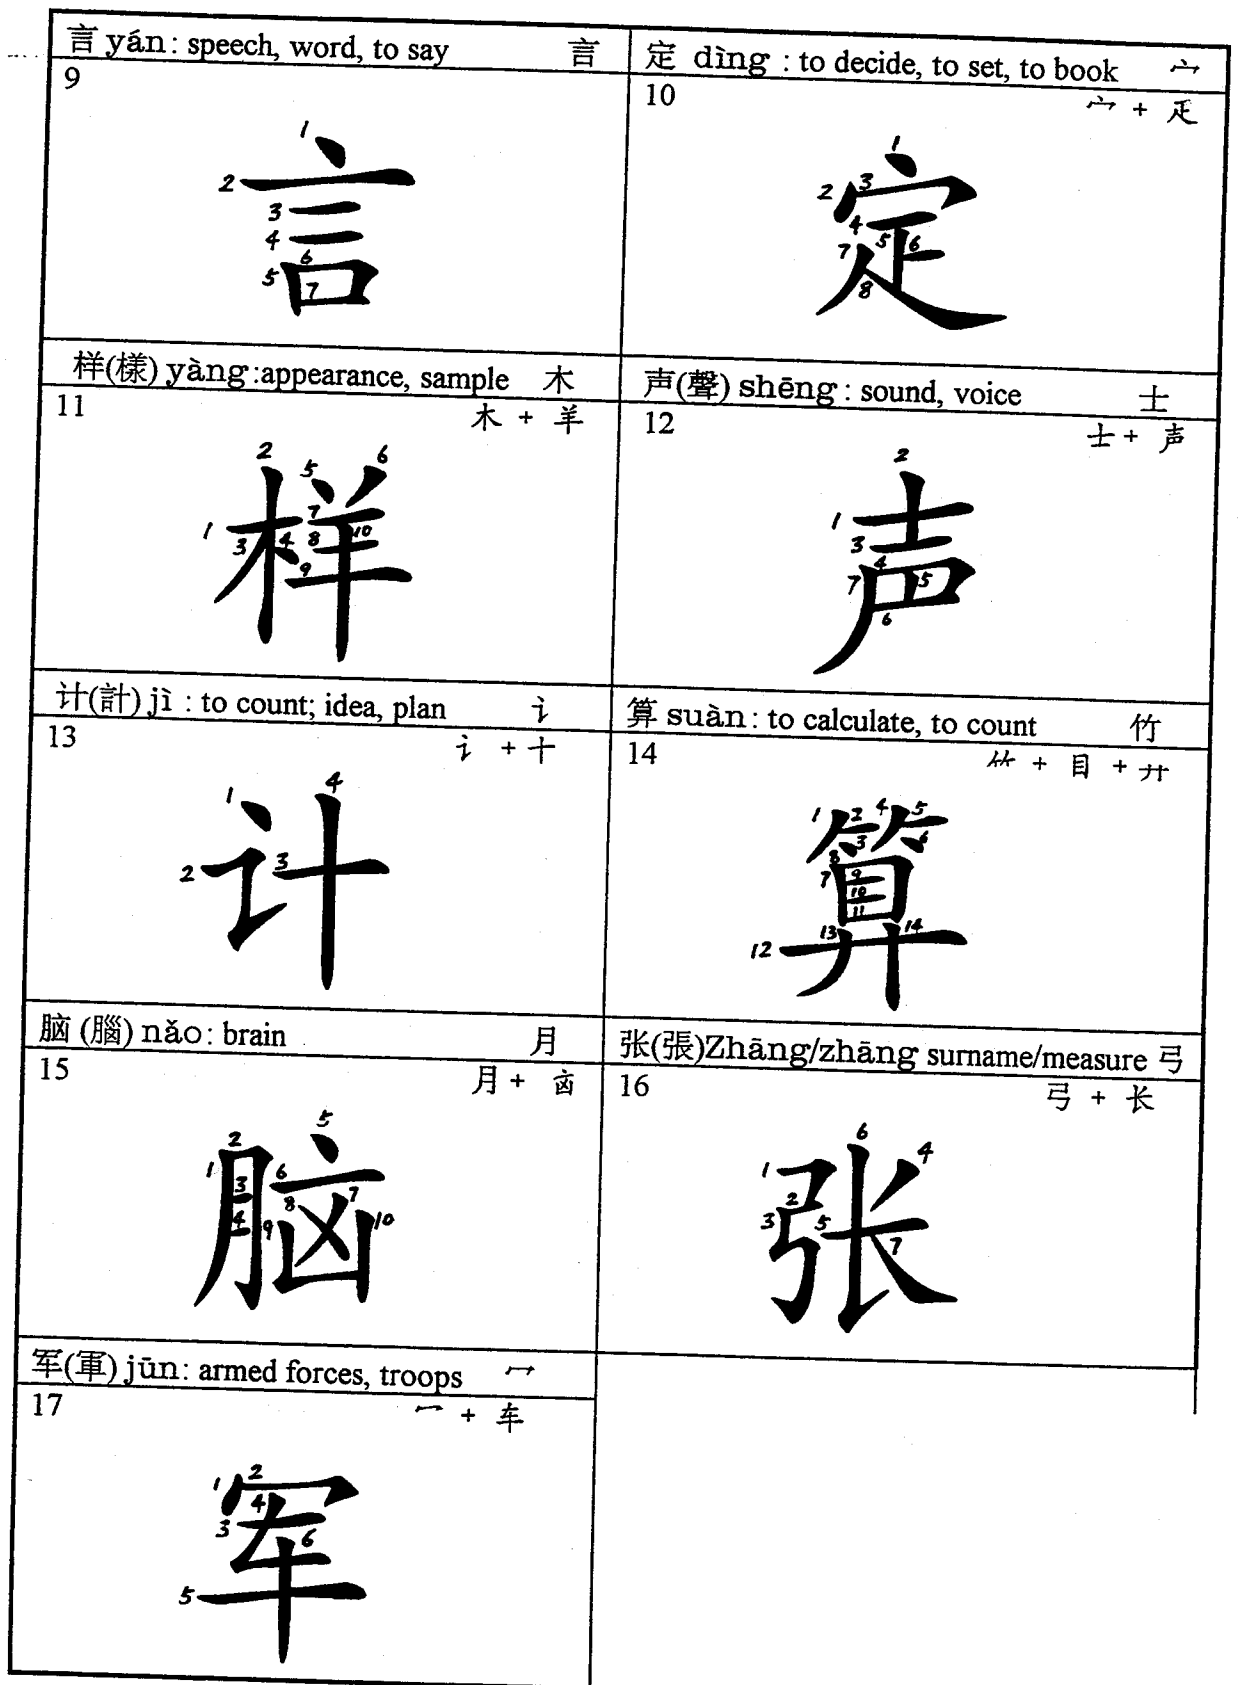 言 yán: speech, word, to say 言
9
言
1
2
3
4
5
6
7
定 dìng : to decide, to set, to book 宀
10
宀 + 疋
定
1
2
3
4
5
6
7
8
样(樣) yàng:appearance, sample 木
11
木 + 羊
样
1
2
3
4
5
6
7
8
9
10
声(聲) shēng : sound, voice 士
12
士 + 声
声
1
2
3
4
5
6
7
计(計) jì : to count; idea, plan 讠
13
讠 + 十
计
1
2
3
4
算 suàn: to calculate, to count 竹
14
⺮ + 目 + 廾
算
1
2
3
4
5
6
7
8
9
10
11
12
13
14
脑 (腦) nǎo: brain 月
15
月 + 㐫
脑
1
2
3
4
5
6
7
8
9
10
张(張)Zhāng/zhāng surname/measure 弓
16
弓 + 长
张
1
2
3
4
5
6
7
军(軍) jūn: armed forces, troops 冖
17
冖 + 车
军
1
2
3
4
5
6